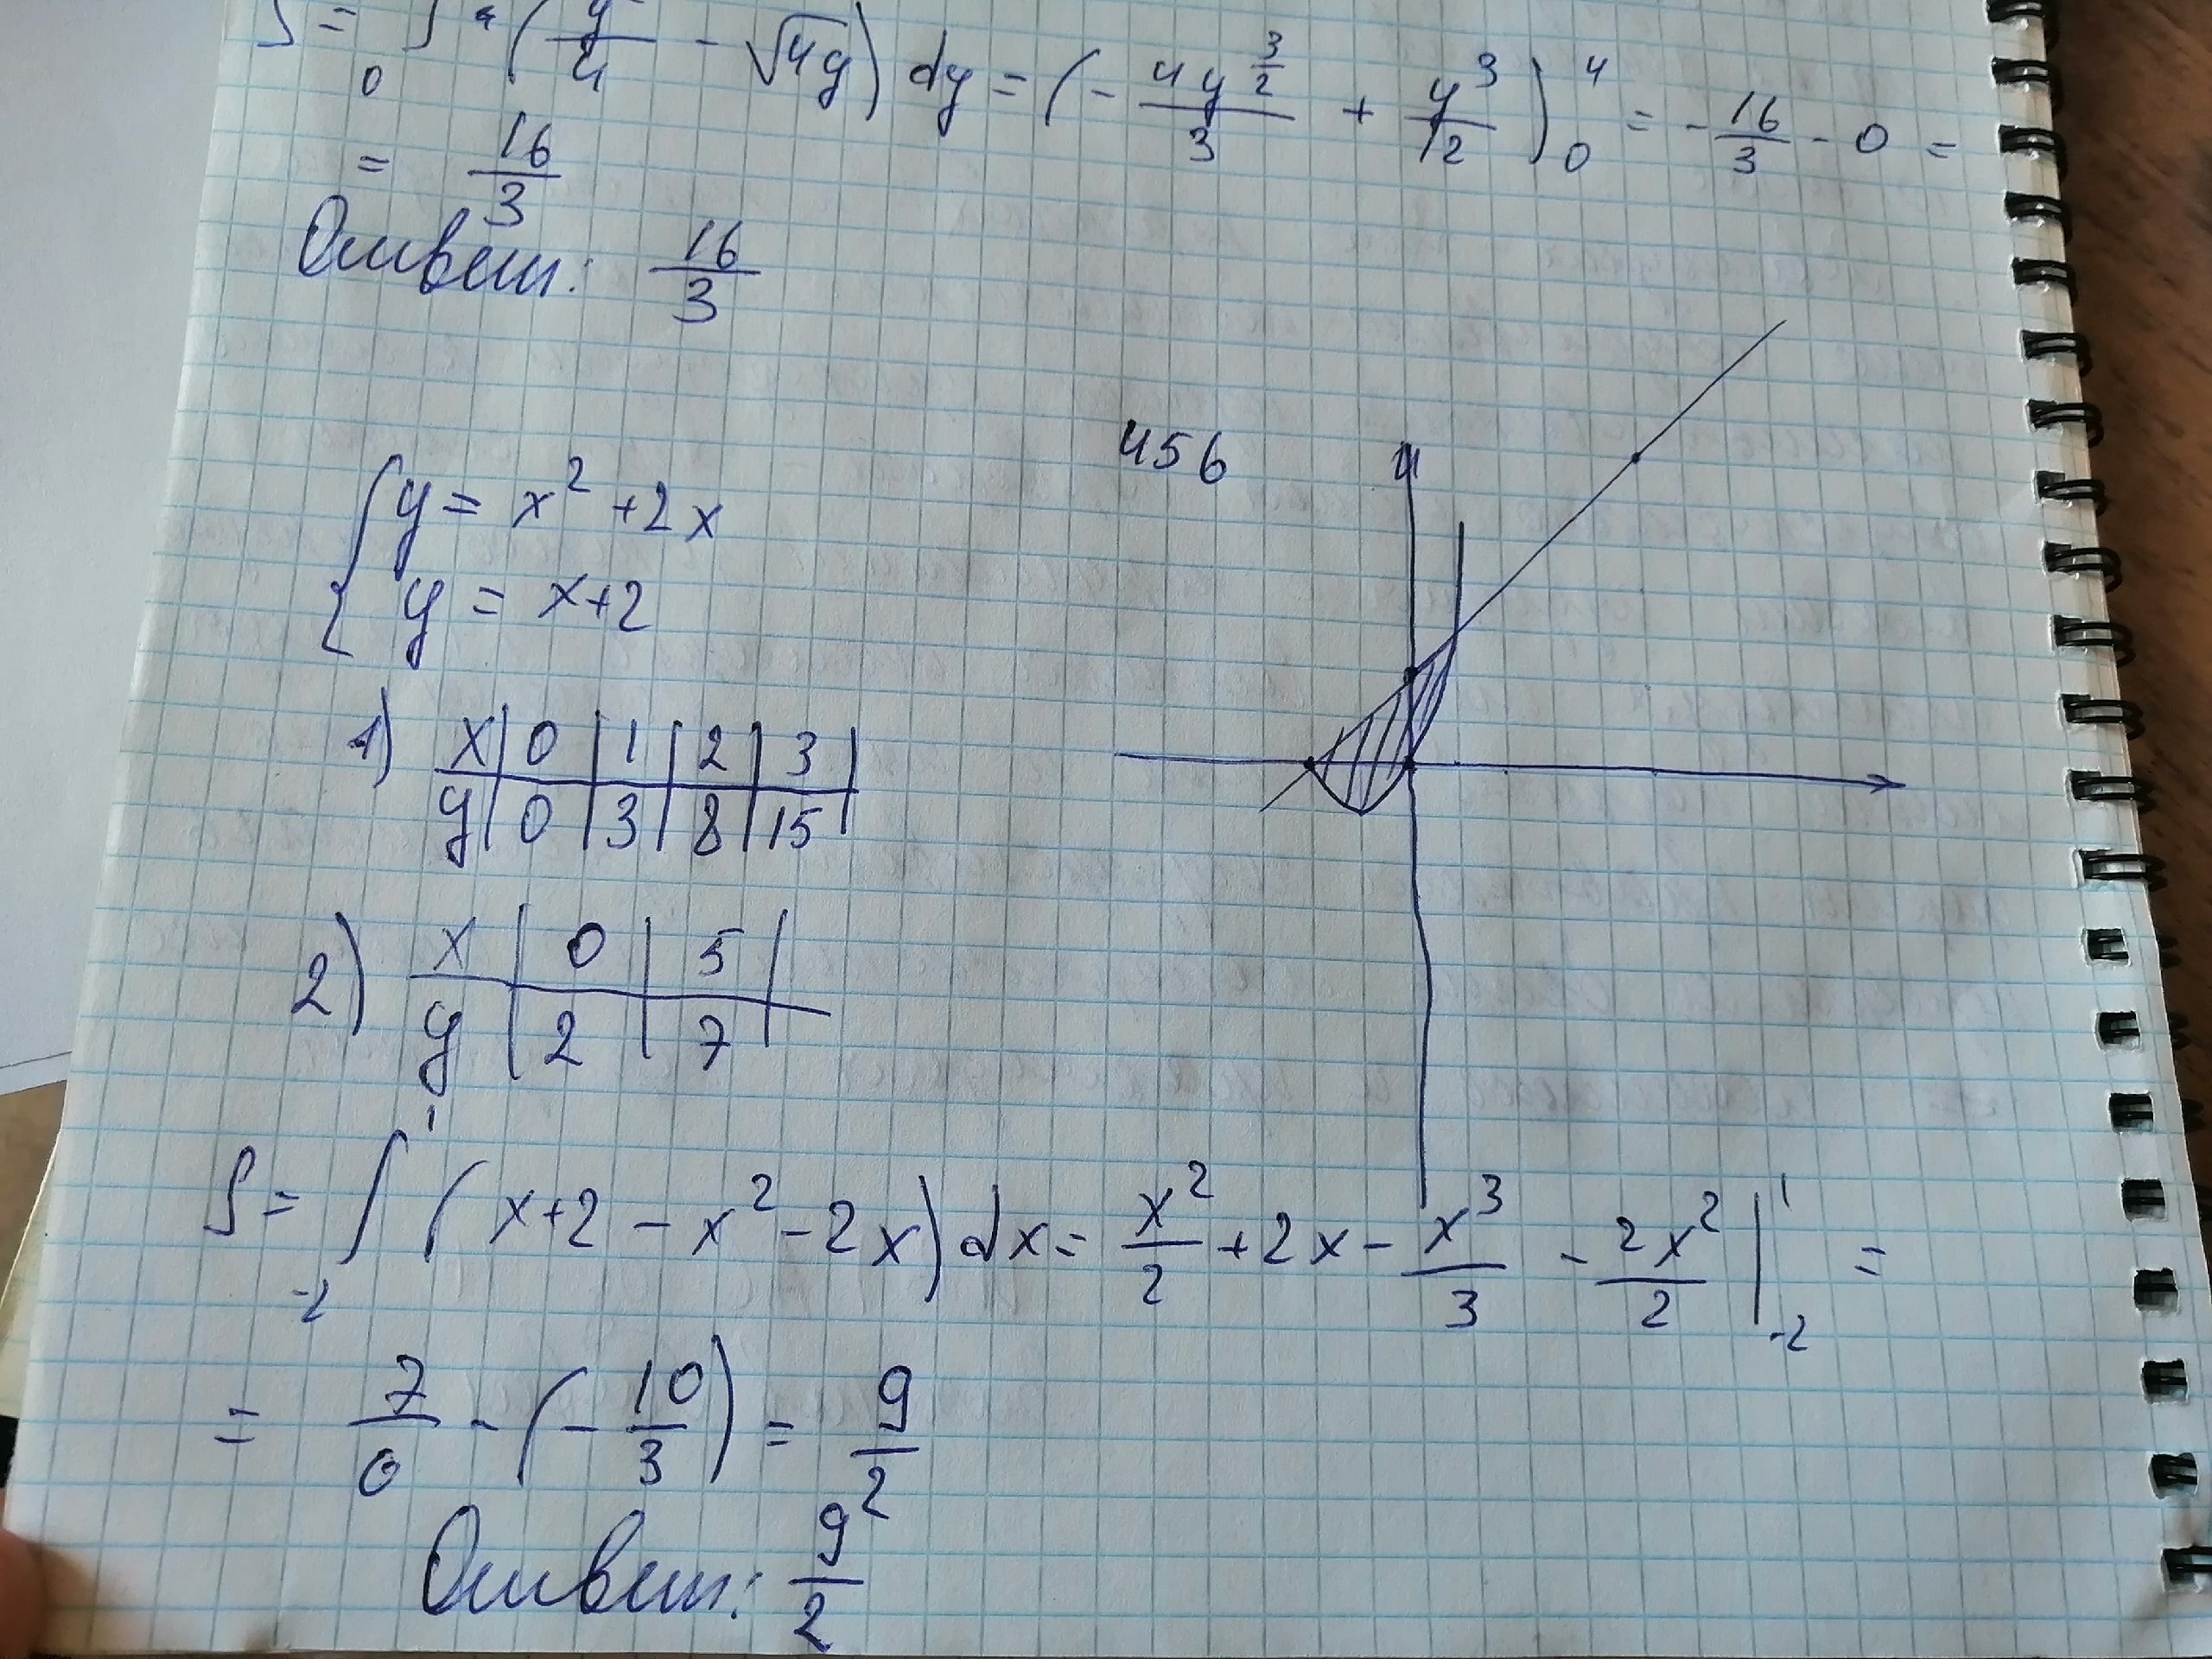 S = ∫₀⁴ (y²/4 - √4y) dy = (- 4y^(3/2)/3 + y³/12)₀⁴ = - 16/3 - 0 =
= 16/3
Ответ: 16/3
456
y
{ y = x² + 2x
y = x+2
1) x | 0 | 1 | 2 | 3 |
y | 0 | 3 | 8 | 15 |
2) x | 0 | 5 |
y | 2 | 7 |
S = ∫₋₂¹ (x+2 - x² - 2x) dx = x²/2 + 2x - x³/3 - 2x²/2 |₋₂¹ =
= 7/6 - (- 10/3) = 9/2
Ответ: 9/2